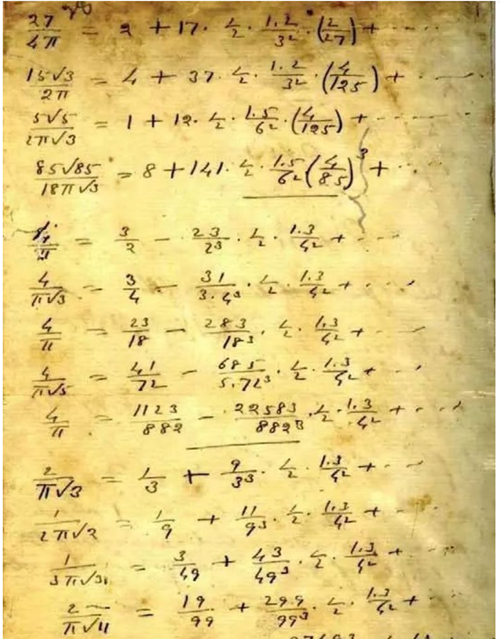 27/4π = 2 + 17· 1/2· 1·2/3²·(2/27) + ····
15√3/2π = 4 + 37· 1/2· 1·2/3²·(4/125) + ····
5√5/2π√3 = 1 + 12· 1/2· 1·5/6²·(4/125) + ····
85√85/18π√3 = 8 + 141· 1/2· 1·5/6²(4/85)³ + ···
4/π = 3/2 − 23/2³· 1/2· 1·3/4² + ···
4/π√3 = 3/4 − 31/3·4³· 1/2· 1·3/4² + ···
4/π = 23/18 − 283/18³· 1/2· 1·3/4² + ···
4/π√5 = 41/72 − 685/5·72³· 1/2· 1·3/4² + ···
4/π = 1123/882 − 22583/882³· 1/2· 1·3/4² + ···
2/π√3 = 1/3 + 9/3³· 1/2· 1·3/4² + ···
1/2π√2 = 1/9 + 11/9³· 1/2· 1·3/4² + ···
1/3π√3 = 3/49 + 43/49³· 1/2· 1·3/4² + ···
2/π√11 = 19/99 + 299/99³· 1/2· 1·3/4² + ···